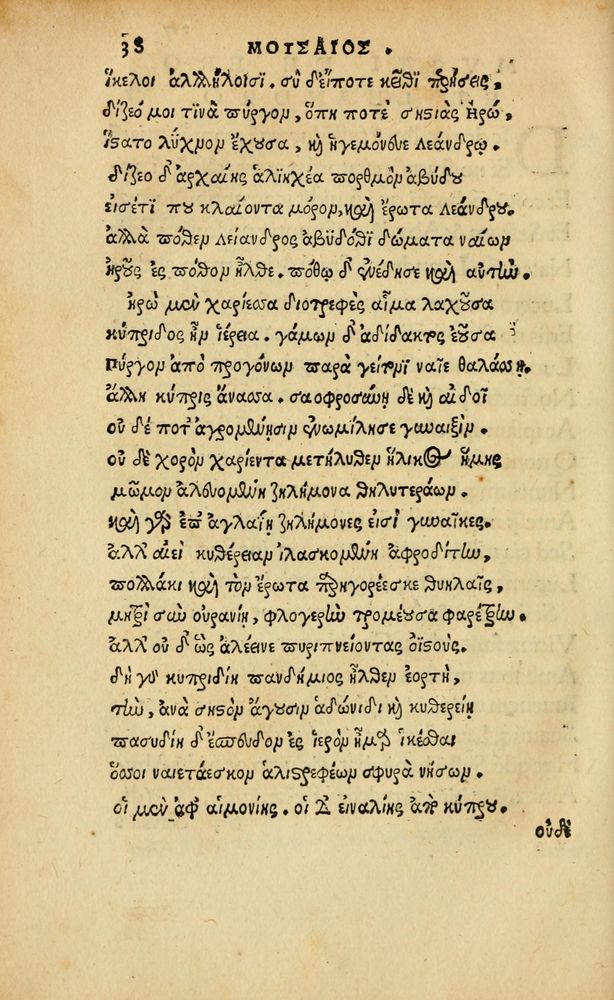 38 ΜΟΥΣΑΙΟΣ .
ἴκελοι ἀλλήλοισι . σὺ δ' εἴποτε κεῖθι περήσεις,
δίζεό μοι τινὰ πύργον, ὅπη ποτὲ σηστιὰς Ἡρώ,
ἵστατο λύχνον ἔχουσα, καὶ ἡγεμόνευε Λεάνδρῳ.
δίζεο δ' ἀρχαίης ἁλιηχέα πορθμὸν ἀβύδου
εἰσέτι που κλαίοντα μόρον, καὶ ἔρωτα Λεάνδρου.
ἀλλὰ πόθεν Λείανδρος ἀβυδόθι δώματα ναίων
ἡροῦς ἐς πόθον ἦλθε . πόθῳ δ' ἐνέδησε καὶ αὐτήν.
ἡρὼ μὲν χαρίεσσα διοτρεφὲς αἷμα λαχοῦσα
κύπριδος ἦν ἱέρεια . γάμων δ' ἀδίδακτος ἐοῦσα
πύργον ἀπὸ προγόνων παρὰ γείτονι ναῖε θαλάσσῃ.
ἄλλη κύπρις ἄνασσα . σαοφροσύνῃ δὲ καὶ αἰδοῖ
οὐδέποτ' ἀγρομένῃσιν ἐνωμίλησε γυναιξὶν .
οὐδὲ χορὸν χαρίεντα μετήλυθεν ἥλικος ἥμης
μῶμον ἀλευομένη ζηλήμονα θηλυτεράων .
καὶ γὰρ ἐπ' ἀγλαΐῃ ζηλήμονές εἰσι γυναῖκες.
ἀλλ' αἰεὶ κυθέρειαν ἱλασκομένη ἀφροδίτην,
πολλάκι καὶ τὸν ἔρωτα παρηγορέεσκε θυηλαῖς,
μητρὶ σὺν οὐρανίῃ, φλογερὴν τρομέουσα φαρέτρην .
ἀλλ' οὐδ' ὣς ἀλέεινε πυριπνείοντας ὀϊστούς.
δὴ γὰρ κυπριδίη πανδήμιος ἦλθεν ἑορτὴ,
τὴν, ἀνὰ σηστὸν ἄγουσιν ἀδώνιδι καὶ κυθερείῃ
πασυδίῃ δ' ἔσπευδον ἐς ἱερὸν ἦμαρ ἱκέσθαι
ὅσσοι ναιετάεσκον ἁλιστρεφέων σφυρὰ νήσων .
οἱ μὲν ἀφ' αἱμονίης . οἱ δ' εἰναλίης ἀπὸ κύπρου.
οὐδὲ